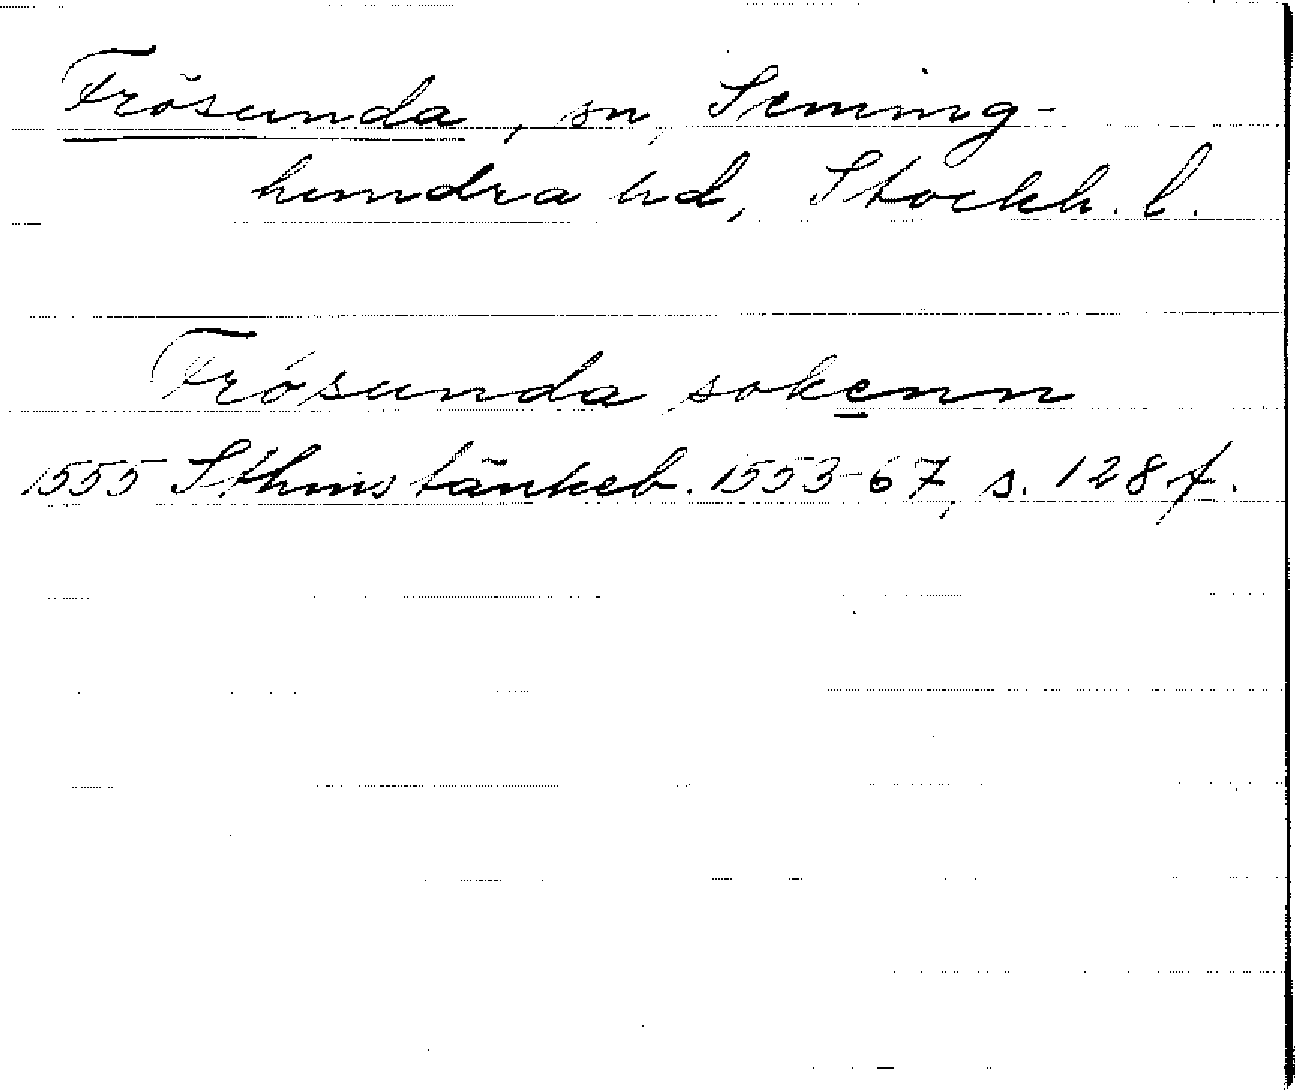 Frösunda, sn, Seming-
hundra hd, Stockh. l.
Frósunda sokenn
1555 Sthms tänkeb. 1553-67, s. 128 f.